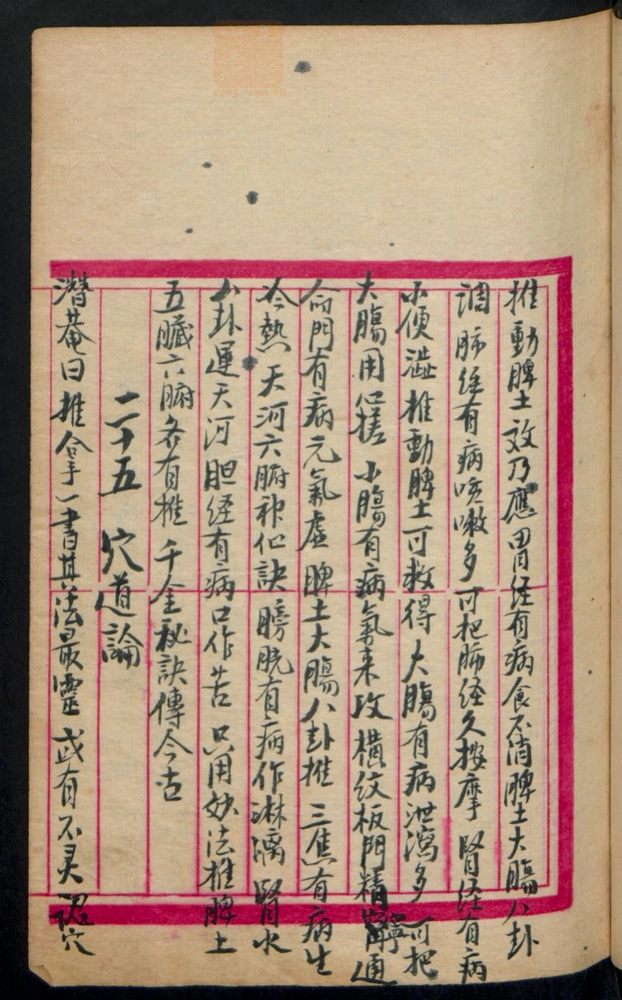 推動脾土效乃應 胃经有病食不消 脾土大腸八卦
調 肺经有病咳嗽多 可把肺经久按摩 腎经有病
小便澁 推動脾土可救得 大腸有病泄瀉多 可把
大腸用心搓 小腸有病氣来攻 橫纹板門精寧通
命門有病元氣虛 脾土大腸八卦推 三焦有病生
冷熱 天河六腑神仙訣 膀胱有病作淋漓 腎水
八卦運天河 胆经有病口作苦 只用妙法推脾土
五臟六腑各有推 千金秘訣傳今古
二十五 穴道論
潛菴曰推拿一書其法最靈 或有不灵 認穴